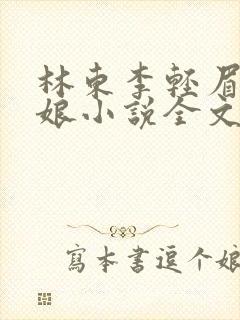 林东李輕眉
娘小說全文
寫本書逗个娘